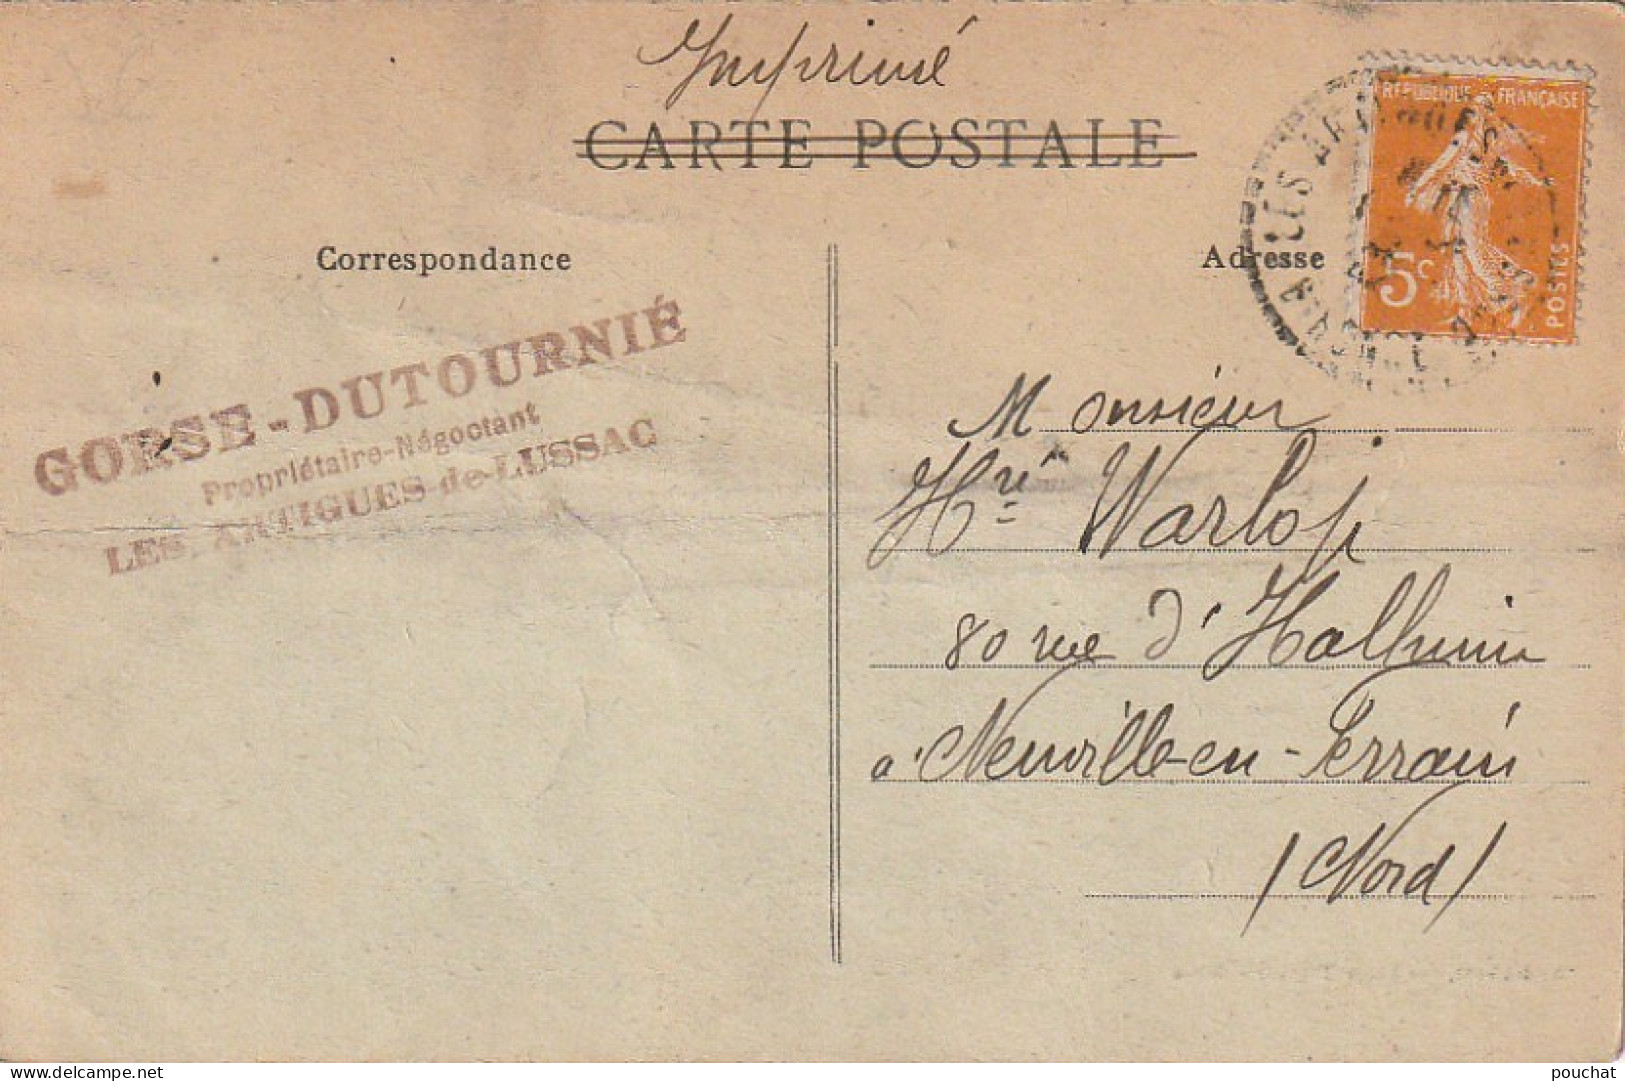 Imprimé
CARTE POSTALE
Correspondance
Adresse
RÉPUBLIQUE FRANÇAISE
5c
POSTES
GORSE-DUTOURNIÉ
Propriétaire-Négociant
LES ARTIGUES-de-LUSSAC
Monsieur
Hri Warlop
80 rue d'Halluin
à Neuville-en-Ferrain
(Nord)
delcampe.net
pouchat